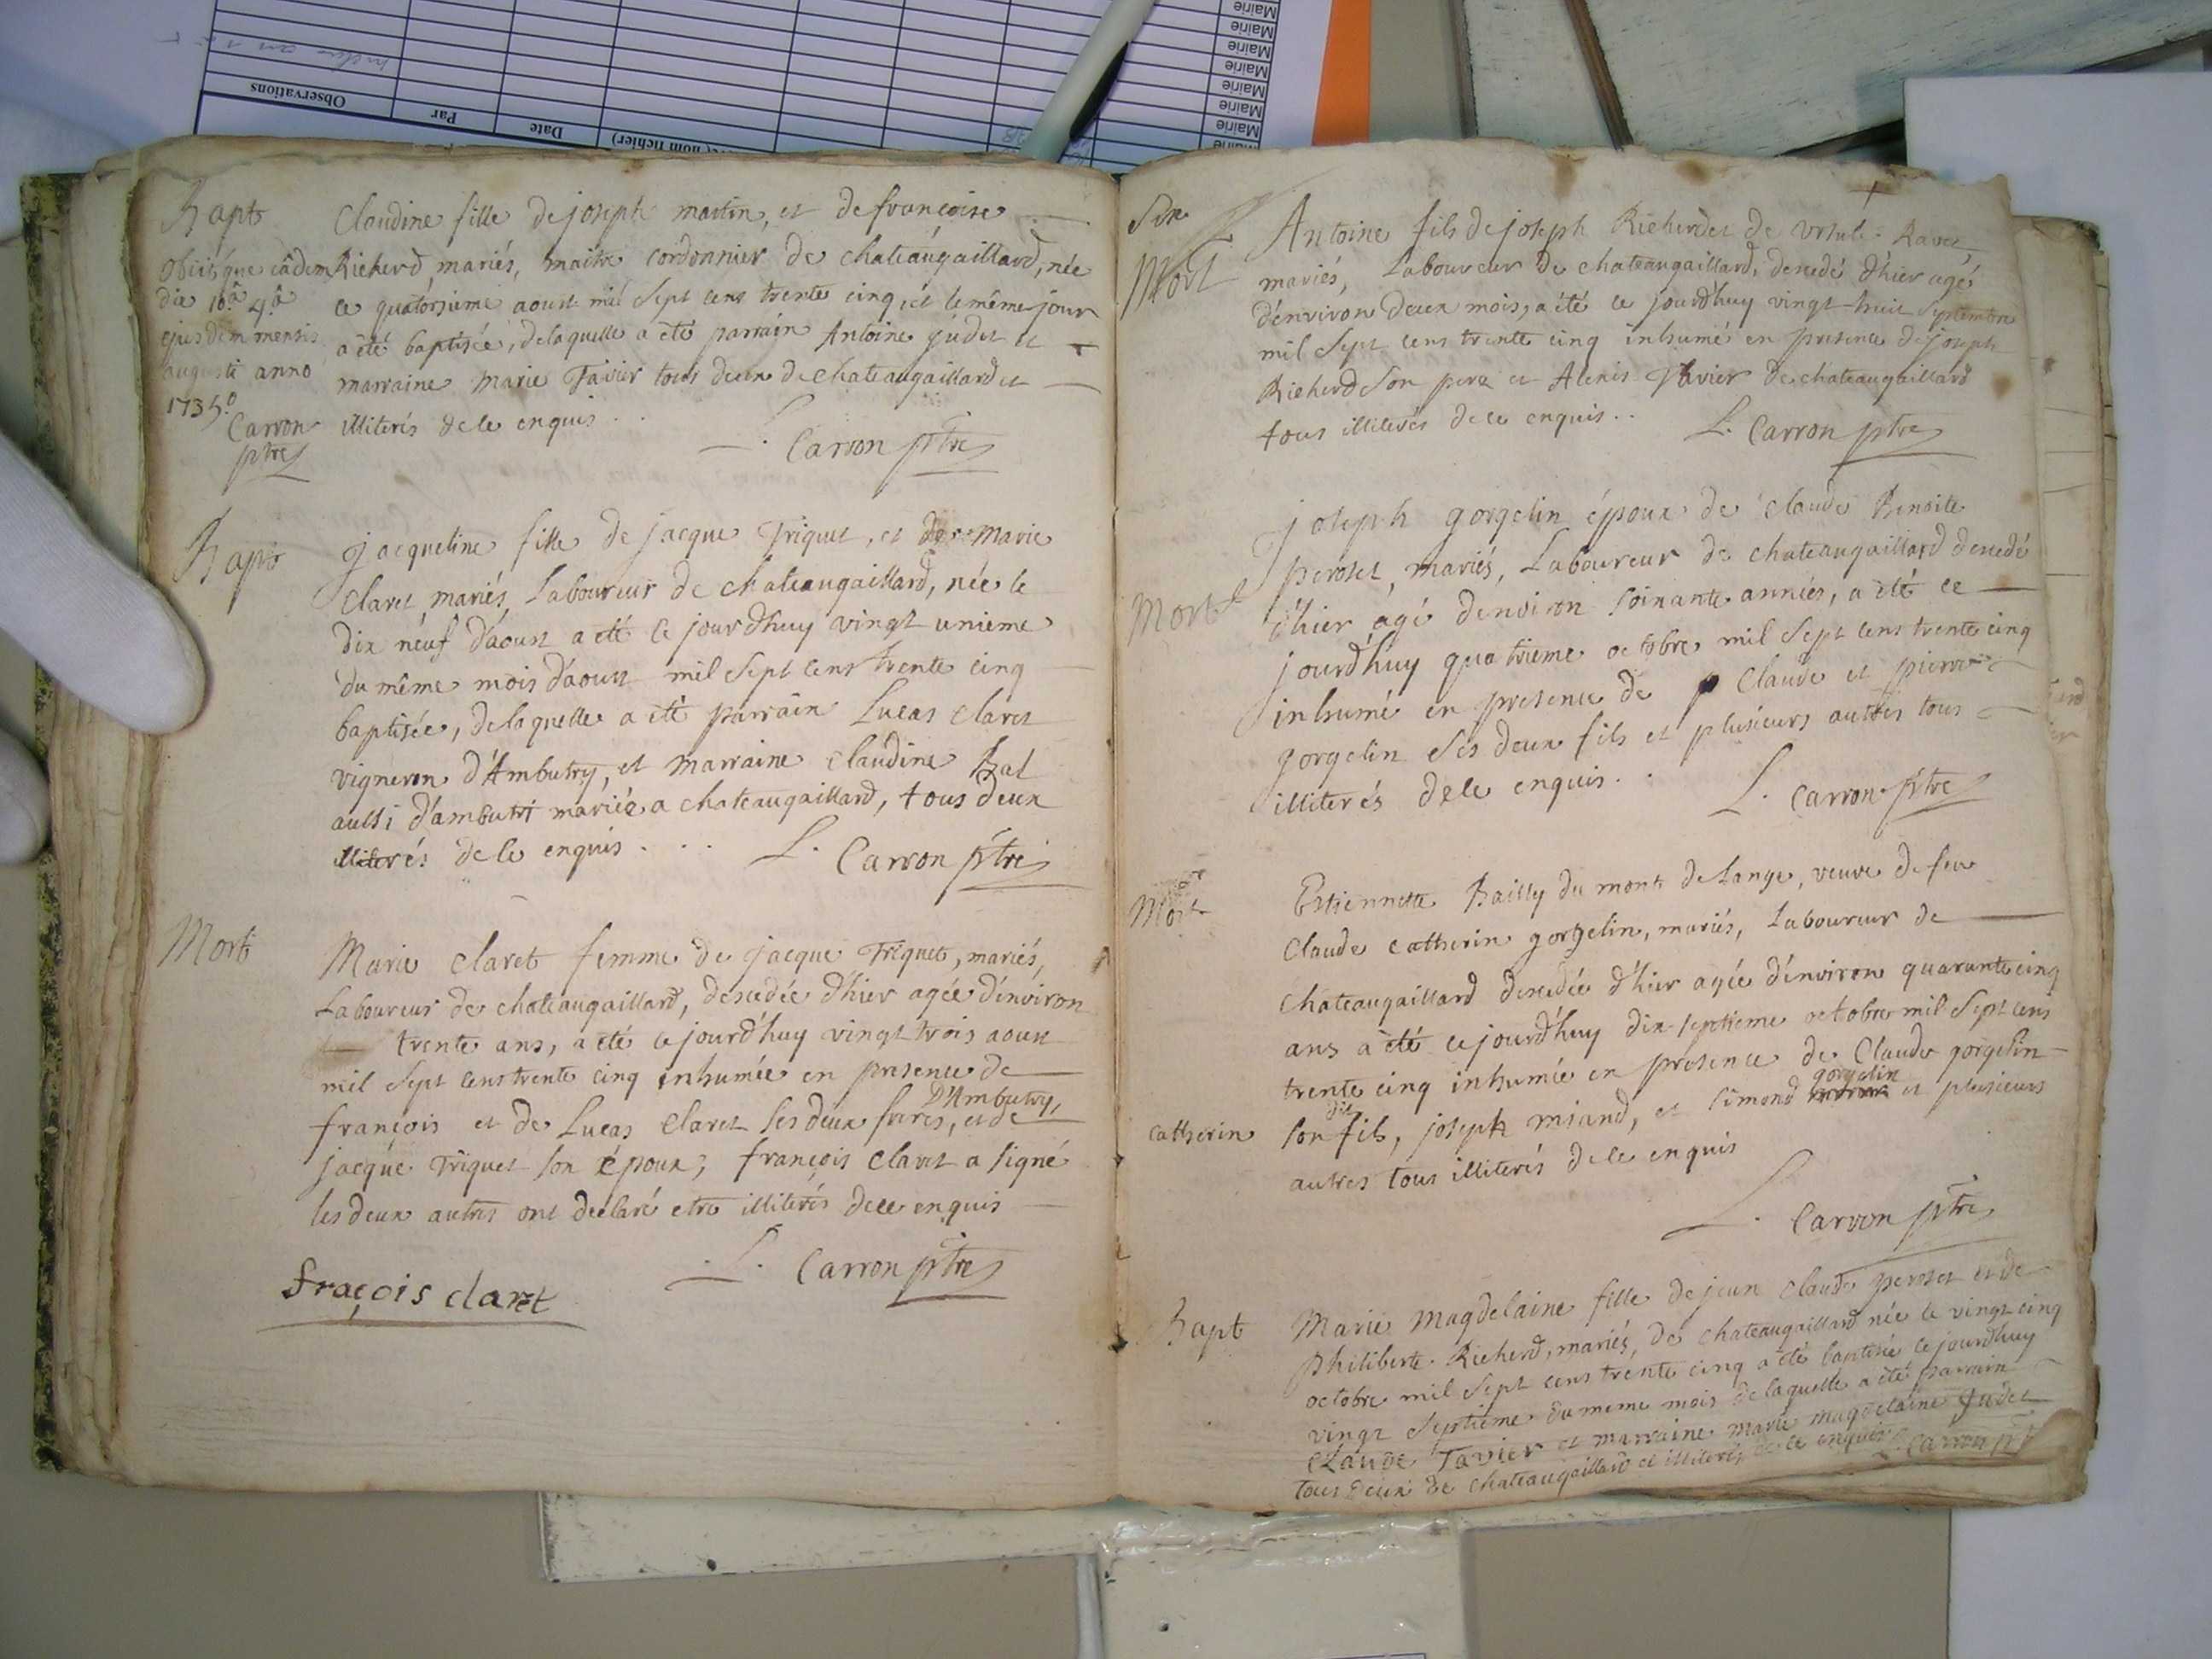 Mairie
Mairie
Mairie
Mairie
Mairie
Mairie
Mairie
Observations
Par
Date
nom fichier)
Bapt
Claudine fille de joseph martin, et de françoise
Obiitque eâdem
die 10ª 4ª
ejusdem mensis
augusti anno
1735º
Carron
ptre
Richerd, mariés, maitre cordonnier de chateaugaillard, née
le quatorsieme aoust mil Sept cens trente cinq, et le même jour
a été baptisée, delaquelle a eté parrain Antoine judet et
marraine marie Tavier tous deux de chateaugaillard et
illiterés de le enquis . .
L. Carron ptre
Bapt
jacqueline fille de jacque Triquet, et de marie
Claret mariés, Laboureur de chateaugaillard, née le
dix neuf d'aoust a été ce jourd'huy vingt unieme
du même mois d'aoust mil Sept cens trente cinq
baptisée, delaquelle a eté parrain Lucas Claret
vigneron d'Ambutry, et marraine claudine Bal
aussi d'ambutri mariée a chateaugaillard, tous deux
illiterés de le enquis . . .
L. Carron ptre
Mort
Marie Claret femme de jacque Triquet, mariés,
Laboureur de chateaugaillard, decedée d'hier agée d'environ
trente ans, a eté cejourd'huy vingt trois aoust
mil Sept cens trente cinq inhumée en presence de
D'Ambutry,
françois et de Lucas Claret ses deux freres, et de
jacque Triquet son époux; françois claret a signé
les deux autres ont declaré etre illiterés dele enquis
L. Carron ptre
fraçois claret
Mort
Antoine fils de joseph Richerd et de Ursule Ravet
mariés, Laboureur de chateaugaillard, decedé d'hier agé
d'environ deux mois, a été ce jourd'huy vingt-huit Septembre
mil Sept cens trente cinq inhumé en presence de joseph
Richerd Son pere et Alexis Tavier de chateaugaillard
tous illiterés de le enquis . .
L. Carron ptre
Mort
joseph gorgelin époux de Claude Benoite
perozet, mariés, Laboureur de chateaugaillard decedé
d'hier agé d'environ soixante années, a eté ce
jourd'huy quatrieme octobre mil Sept cens trente cinq
inhumé en presence de Claude et pierre
gorgelin Ses deux fils et plusieurs autres tous
illiterés dele enquis . .
L. Carron ptre
Mort
Estiennette Bailly du mont de Lange, veuve de feu
Claude catherin gorgelin, mariés, Laboureur de
chateaugaillard decedée d'hier agée d'environ quarante cinq
ans a été cejourd'huy dix-septieme octobre mil Sept cens
trente cinq inhumée en presence de Claude gorgelin
dit gorgelin
catherin
son fils, joseph miand, et simond et plusieurs
autres tous illiterés de le enquis
L. Carron ptre
Bapt
Marie Magdelaine fille de jean Claude perozet et de
philiberte Richerd, mariés, de chateaugaillard née le vingt cinq
octobre mil Sept cens trente cinq a été baptisée ce jourd'huy
vingt Septieme du meme mois de laquelle a été parrain
Claude Tavier et marraine marie magdelaine Judet
tous deux de chateaugaillard et illiterés de le enquis L. Carron ptre